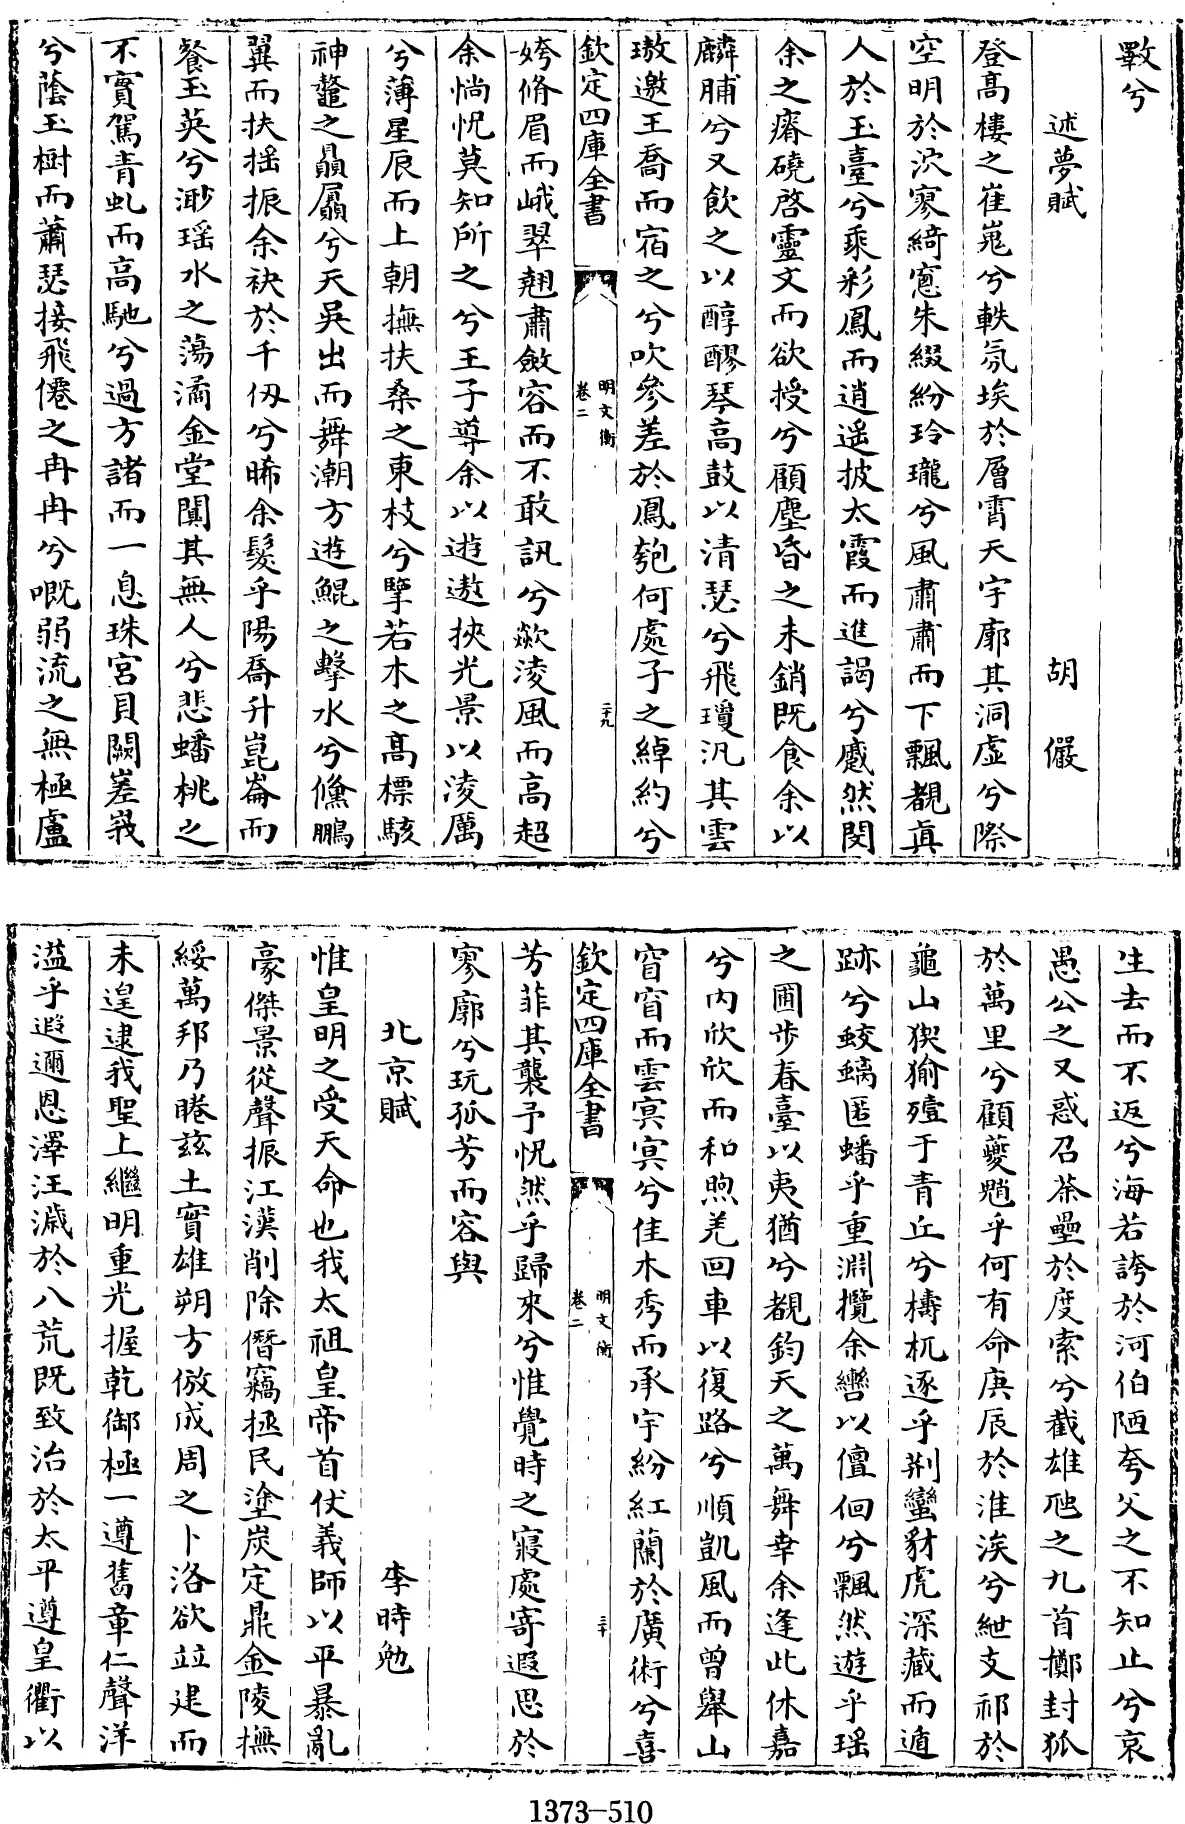 斁兮
述夢賦 胡儼
登高樓之崔嵬兮軼氛埃於層霄天宇廓其洞虛兮際
空明於泬寥綺窻朱綴紛玲瓏兮風肅肅而下飄覩真
人於玉臺兮乘彩鳳而逍遥披太霞而進謁兮慼然閔
余之瘠磽啓靈文而欲授兮顧塵昏之未銷既食余以
麟脯兮又飲之以醇醪琴高鼓以清瑟兮飛瓊汎其雲
璈邀王喬而宿之兮吹參差於鳳匏何處子之綽約兮
欽定四庫全書 明文衡 卷二 二十九
姱脩眉而峨翠翹肅斂容而不敢訊兮歘淩風而高超
余惝怳莫知所之兮王子導余以遊遨挾光景以淩厲
兮薄星辰而上朝撫扶桑之東枝兮搴若木之高標駭
神鼇之贔屭兮天吳出而舞潮方遊鯤之擊水兮儵鵬
翼而扶摇振余袂於千仭兮晞余髮乎陽喬升崑崙而
餐玉英兮渺瑶水之蕩潏金堂闃其無人兮悲蟠桃之
不實駕青虬而高馳兮過方諸而一息珠宫貝闕嵳峩
兮蔭玉樹而蕭瑟接飛僊之冉冉兮嘅弱流之無極盧
生去而不返兮海若誇於河伯陋夸父之不知止兮哀
愚公之又惑召荼壘於度索兮截雄虺之九首擲封狐
於萬里兮顧夔魖乎何有命庚辰於淮涘兮紲支祁於
龜山猰㺄殪于青丘兮檮杌逐乎荆蠻豺虎深藏而遁
跡兮蛟螭匿蟠乎重淵攬余轡以儃佪兮飄然遊乎瑶
之圃步春臺以夷猶兮覩鈞天之萬舞幸余逢此休嘉
兮内欣欣而和煦羌回車以復路兮順凱風而曾舉山
窅窅而雲冥冥兮佳木秀而承宇紛紅蘭於廣術兮喜
欽定四庫全書 明文衡 卷二 三十
芳菲其襲予怳然乎歸來兮惟覺時之寢處寄遐思於
寥廓兮玩孤芳而容與
北京賦 李時勉
惟皇明之受天命也我太祖皇帝首仗義師以平暴亂
豪傑景從聲振江漢削除僭竊拯民塗炭定鼎金陵撫
綏萬邦乃睠兹土實雄朔方倣成周之卜洛欲竝建而
未遑逮我聖上繼明重光握乾御極一遵舊章仁聲洋
溢乎遐邇恩澤汪濊於八荒既致治於太平遵皇衢以
1373-510